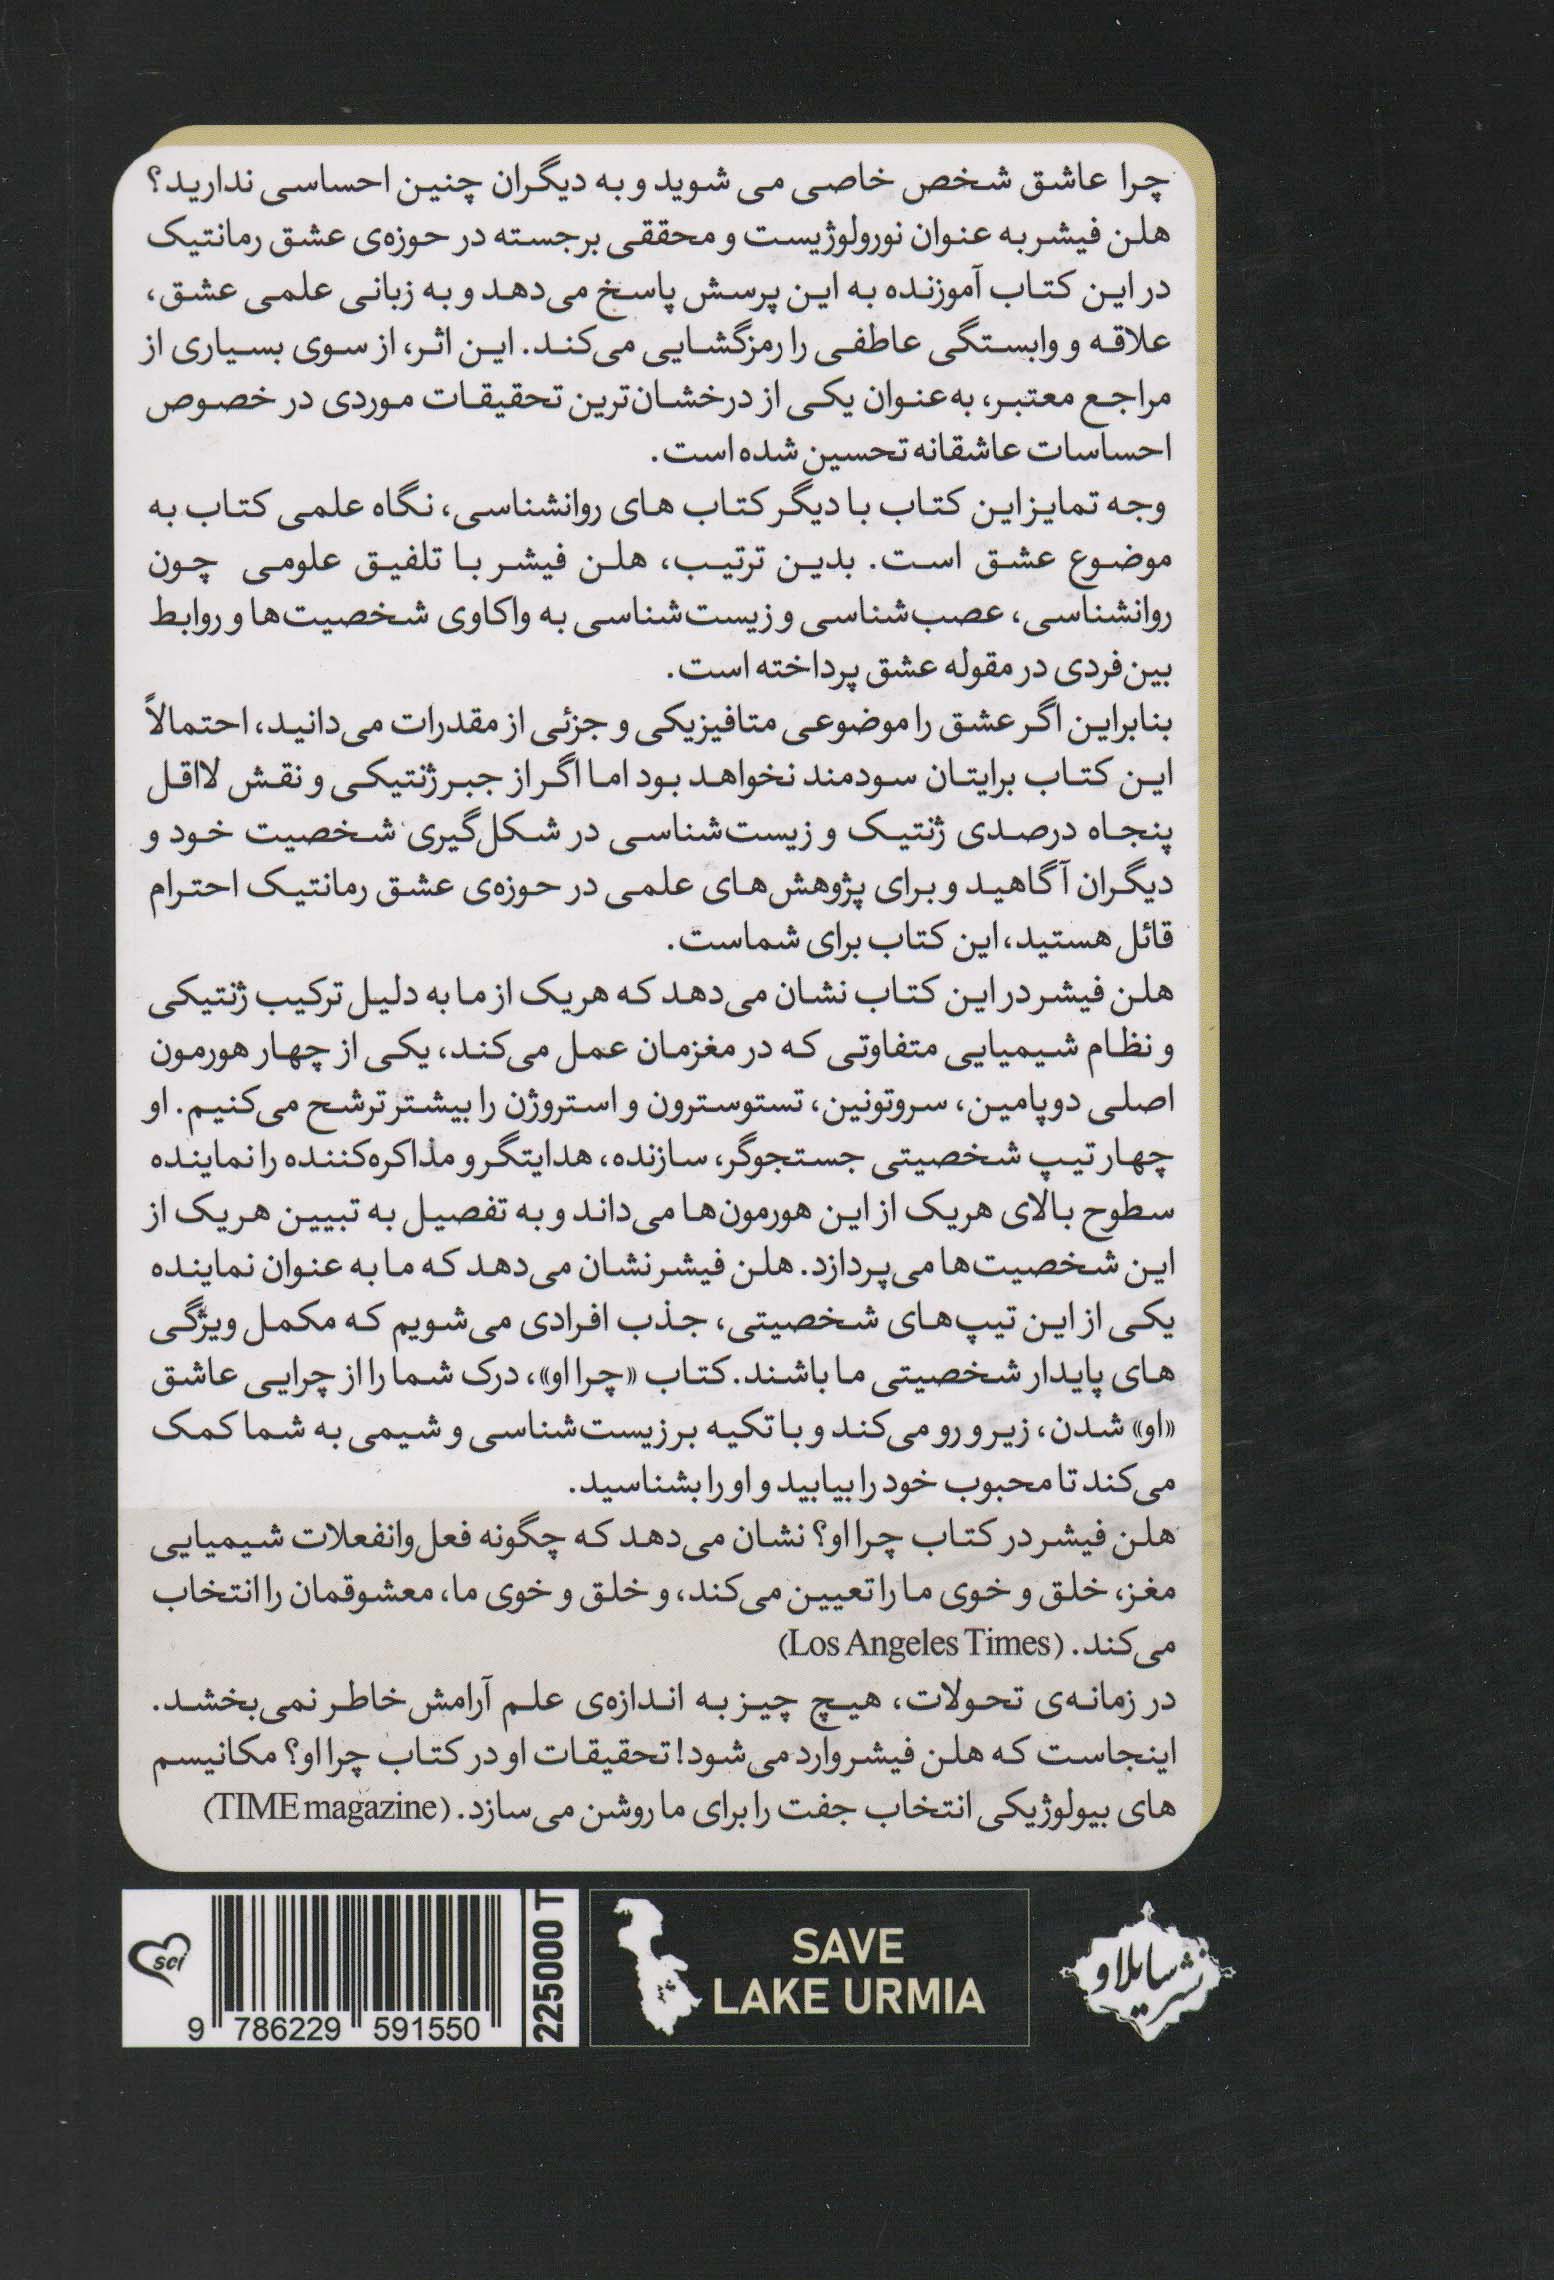 چرا عاشق شخص خاصی می شوید و به دیگران چنین احساسی ندارید؟
هلن فیشر به عنوان نورولوژیست و محققی برجسته در حوزه‌ی عشق رمانتیک
در این کتاب آموزنده به این پرسش پاسخ می‌دهد و به زبانی علمی عشق،
علاقه و وابستگی عاطفی را رمزگشایی می‌کند. این اثر، از سوی بسیاری از
مراجع معتبر، به‌عنوان یکی از درخشان‌ترین تحقیقات موردی در خصوص
احساسات عاشقانه تحسین شده است.
وجه تمایز این کتاب با دیگر کتاب های روانشناسی، نگاه علمی کتاب به
موضوع عشق است. بدین ترتیب، هلن فیشر با تلفیق علومی چون
روانشناسی، عصب‌شناسی و زیست‌شناسی به واکاوی شخصیت‌ها و روابط
بین‌فردی در مقوله عشق پرداخته است.
بنابراین اگر عشق را موضوعی متافیزیکی و جزئی از مقدرات می‌دانید، احتمالاً
این کتاب برایتان سودمند نخواهد بود اما اگر از جبر ژنتیکی و نقش لااقل
پنجاه درصدی ژنتیک و زیست‌شناسی در شکل‌گیری شخصیت خود و
دیگران آگاهید و برای پژوهش‌های علمی در حوزه‌ی عشق رمانتیک احترام
قائل هستید، این کتاب برای شماست.
هلن فیشر در این کتاب نشان می‌دهد که هریک از ما به دلیل ترکیب ژنتیکی
و نظام شیمیایی متفاوتی که در مغزمان عمل می‌کند، یکی از چهار هورمون
اصلی دوپامین، سروتونین، تستوسترون و استروژن را بیشتر ترشح می‌کنیم. او
چهار تیپ شخصیتی جستجوگر، سازنده، هدایتگر و مذاکره‌کننده را نماینده
سطوح بالای هریک از این هورمون‌ها می‌داند و به تفصیل به تبیین هریک از
این شخصیت‌ها می‌پردازد. هلن فیشر نشان می‌دهد که ما به عنوان نماینده
یکی از این تیپ‌های شخصیتی، جذب افرادی می‌شویم که مکمل ویژگی
های پایدار شخصیتی ما باشند. کتاب «چرا او»، درک شما را از چرایی عاشق
«او» شدن، زیر و رو می‌کند و با تکیه بر زیست‌شناسی و شیمی به شما کمک
می‌کند تا محبوب خود را بیابید و او را بشناسید.
هلن فیشر در کتاب چرا او؟ نشان می‌دهد که چگونه فعل‌وانفعلات شیمیایی
مغز، خلق و خوی ما را تعیین می‌کند، و خلق و خوی ما، معشوقمان را انتخاب
می‌کند. (Los Angeles Times)
در زمانه‌ی تحولات، هیچ چیز به اندازه‌ی علم آرامش خاطر نمی‌بخشد.
اینجاست که هلن فیشر وارد می‌شود! تحقیقات او در کتاب چرا او؟ مکانیسم
های بیولوژیکی انتخاب جفت را برای ما روشن می‌سازد. (TIME magazine)
نشر سایلاو
SAVE
LAKE URMIA
225000 T
sci
9 786229 591550